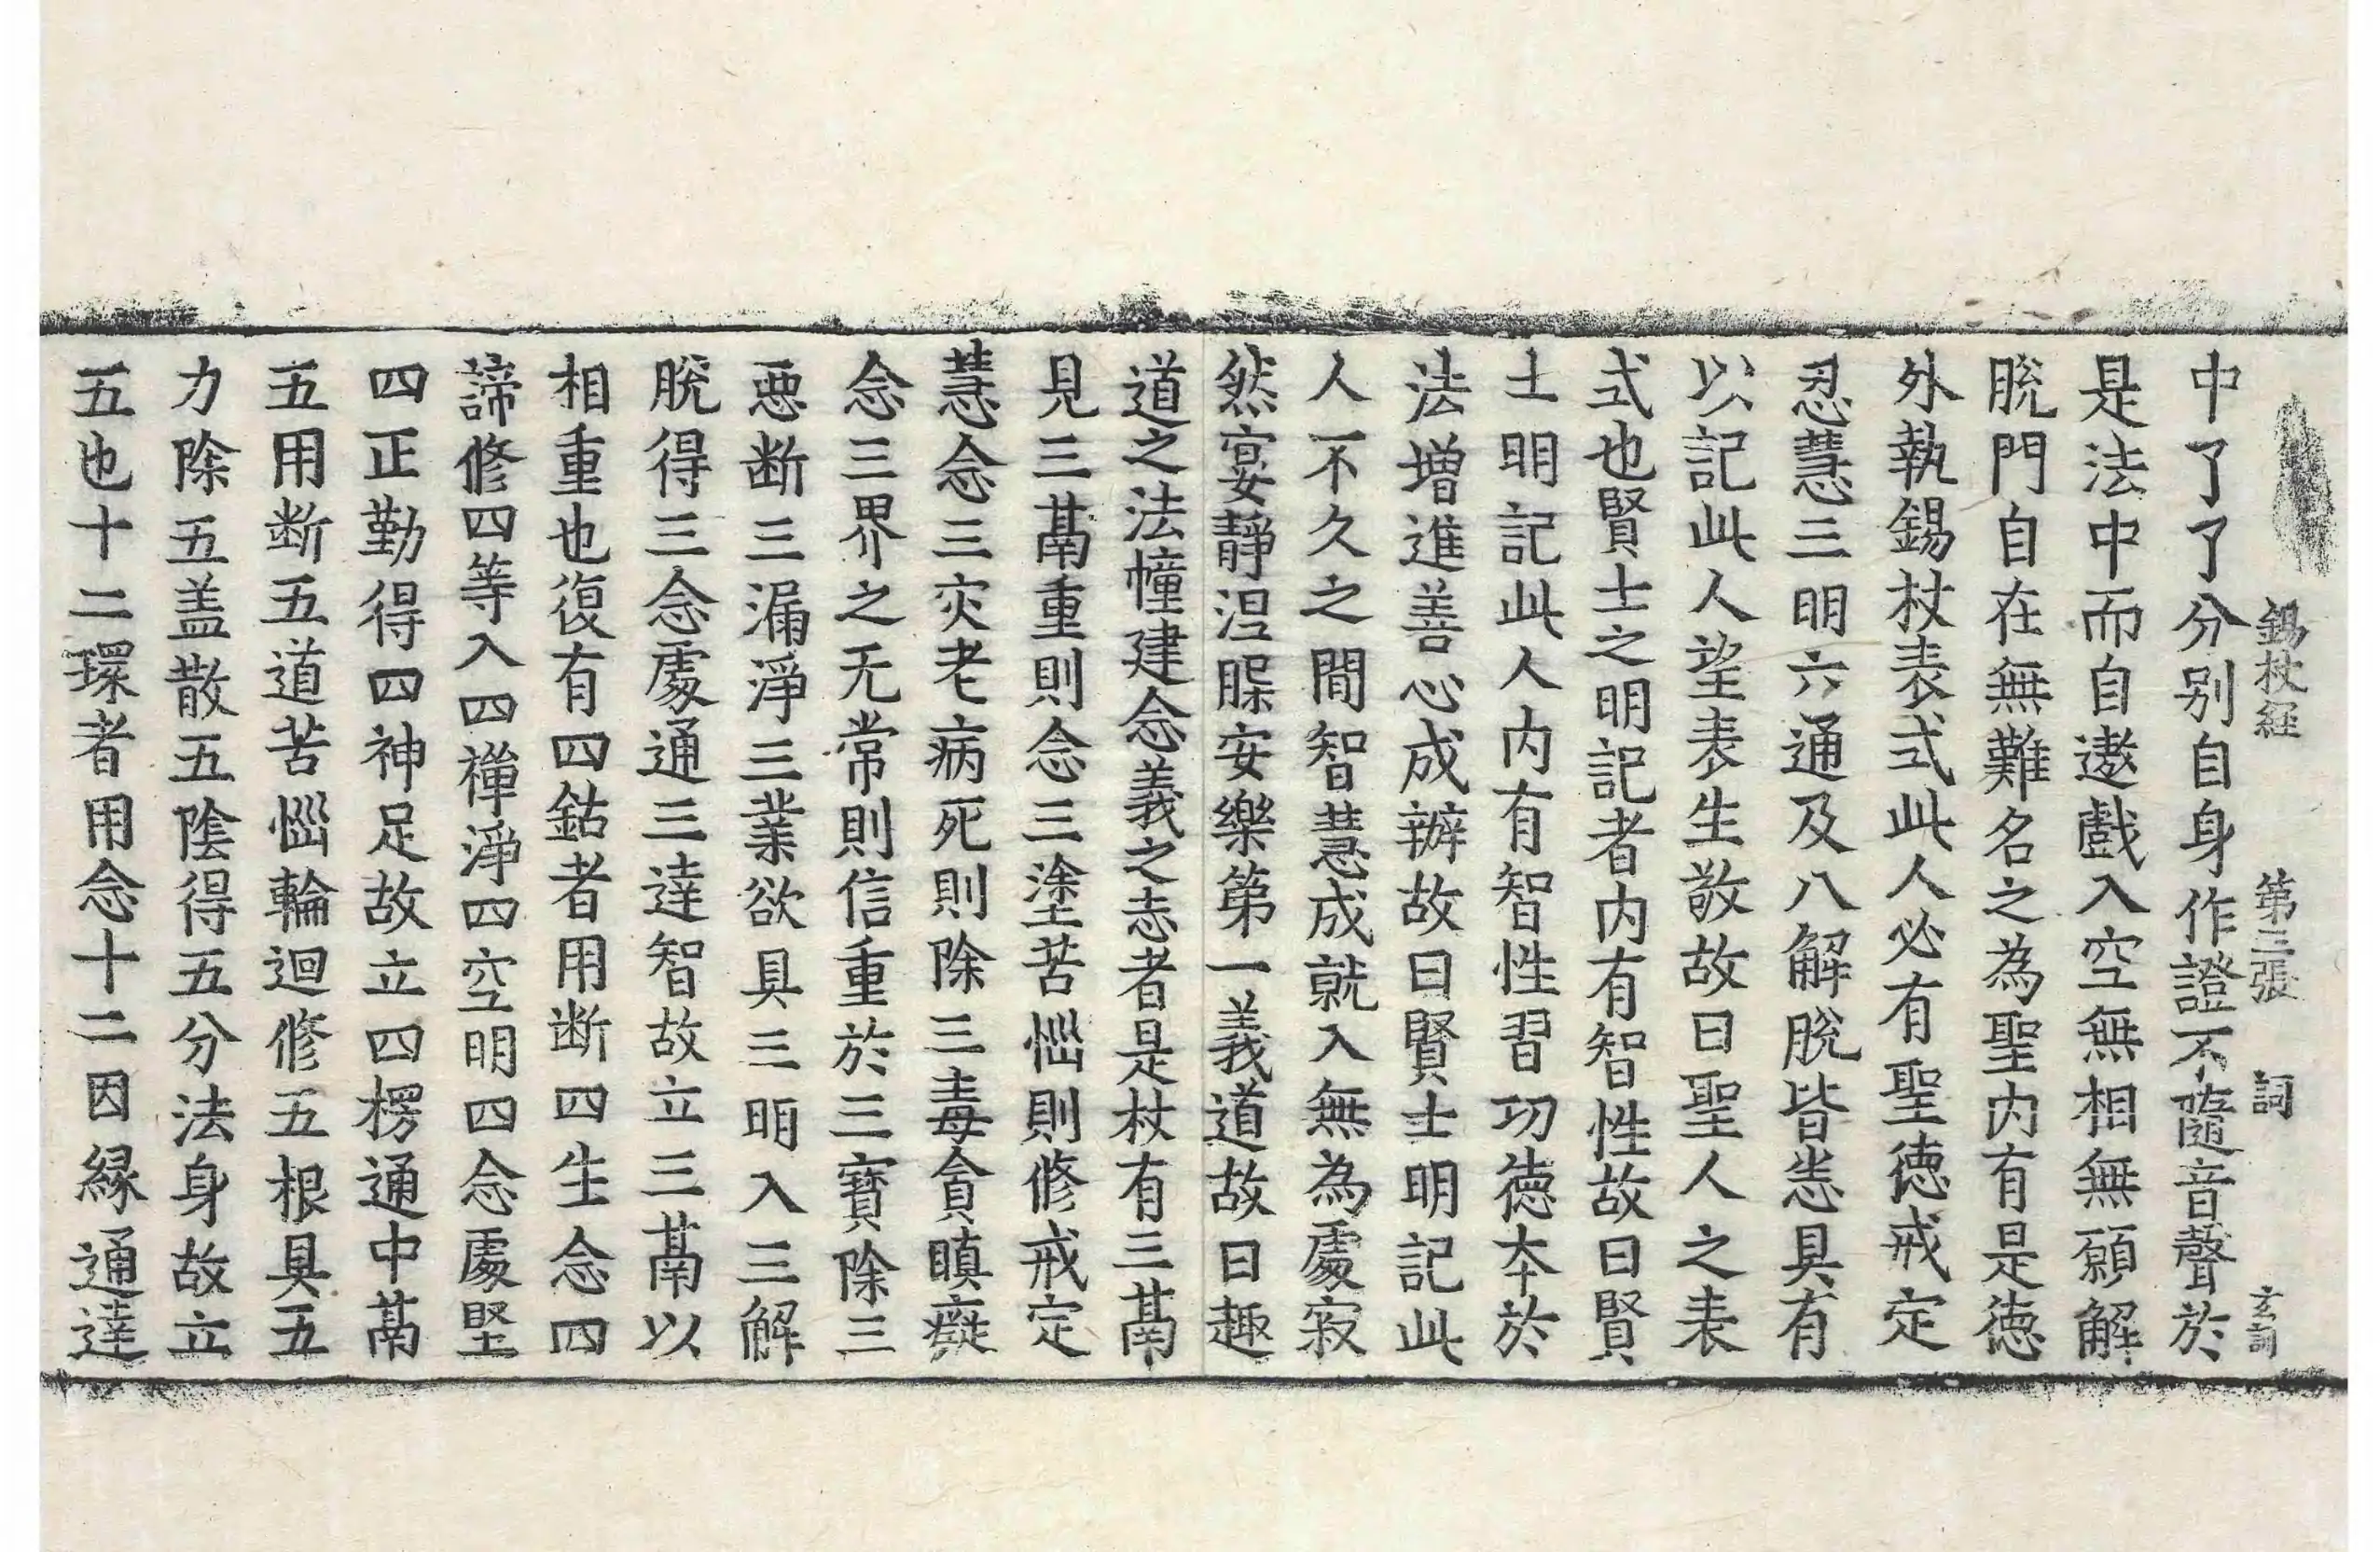 錫杖経 第三張 詞 玄訶
中了了分別自身作證不隨音聲於
是法中而自遨戲入空無相無願解
脫門自在無難名之為聖内有是徳
外執錫杖表式此人必有聖徳戒定
忍慧三明六通及八解脫皆悉具有
以記此人望表生敬故曰聖人之表
式也賢士之明記者内有智性故曰賢
士明記此人内有智性習功徳本於
法増進善心成辦故曰賢士明記此
人不久之間智慧成就入無為處寂
然宴静涅槃安樂第一義道故曰趣
道之法幢建念義之志者是杖有三鬲
見三鬲重則念三塗苦惱則修戒定
慧念三灾老病死則除三毒貪瞋癡
念三界之无常則信重於三寶除三
惡断三漏淨三業欲具三明入三解
脫得三念處通三達智故立三鬲以
相重也復有四鈷者用断四生念四
諦修四等入四禪淨四空明四念處堅
四正勤得四神足故立四楞通中鬲
五用断五道苦惱輪迴修五根具五
力除五盖散五陰得五分法身故立
五也十二環者用念十二因縁通達